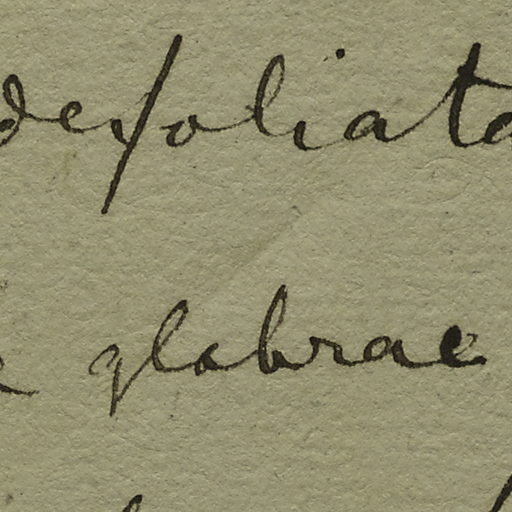 defoliata
glabrae